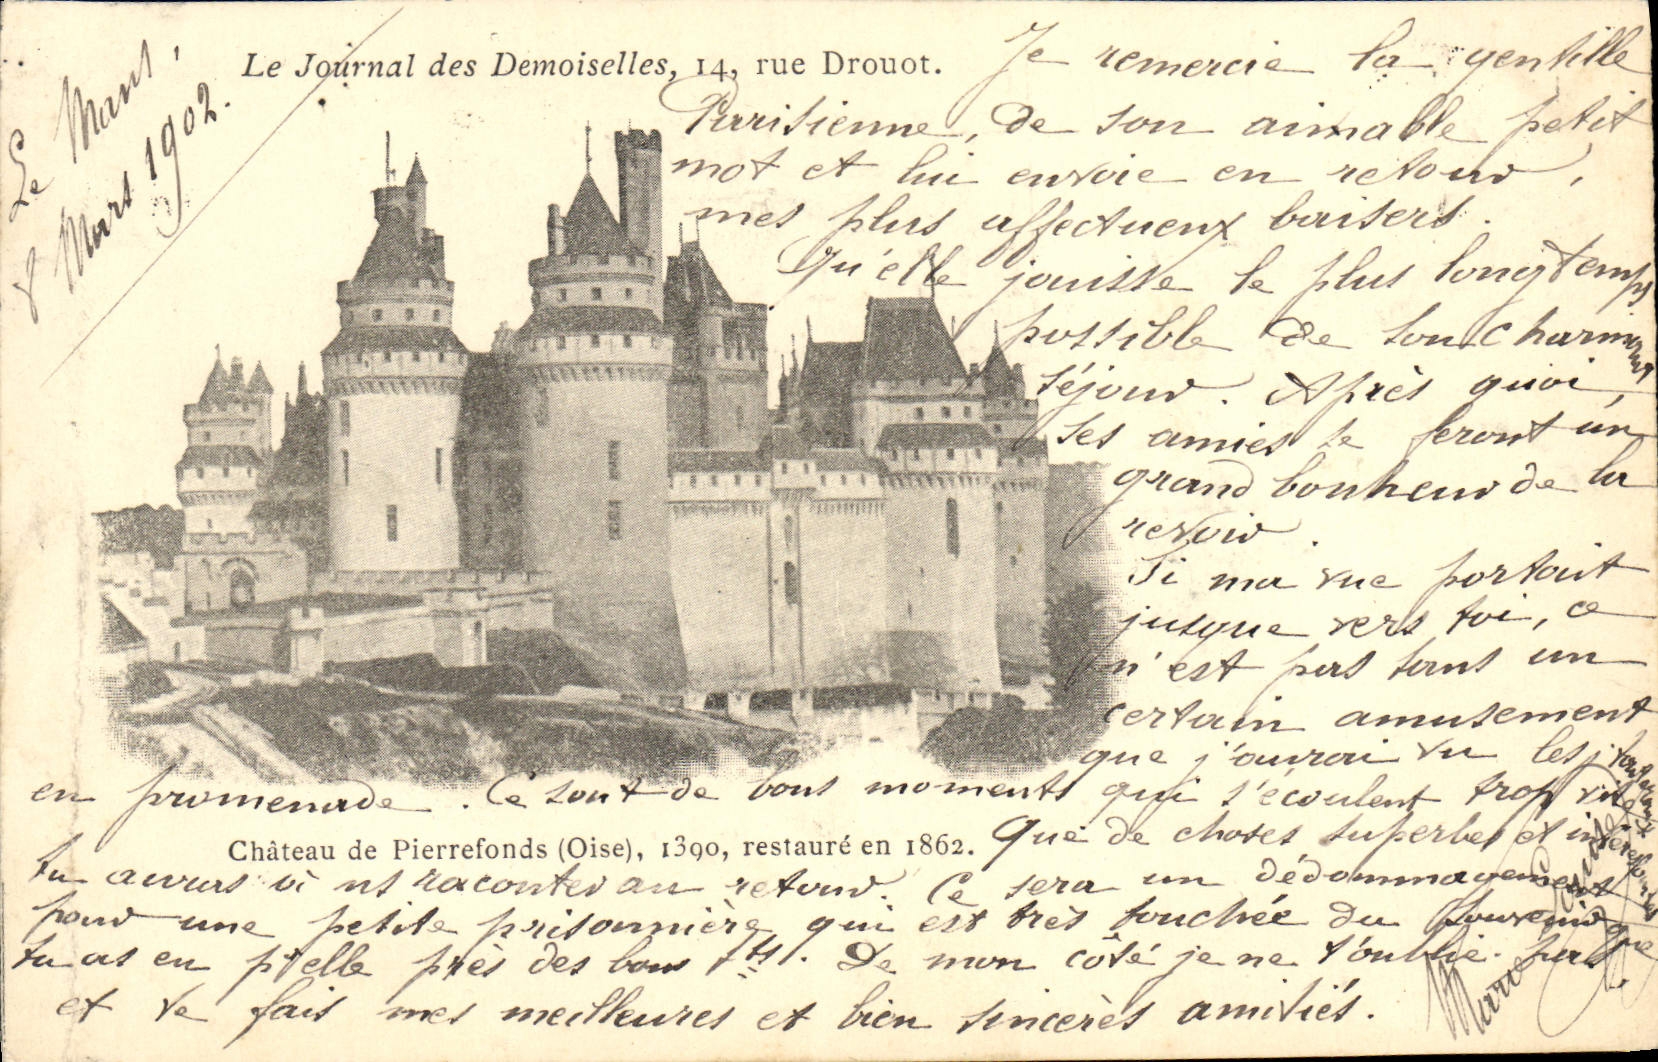 Le Mans,
8 Mars 1902.
Le Journal des Demoiselles, 14, rue Drouot.
Je remercie la gentille
Parisienne, de son aimable petit
mot et lui envoie en retour,
mes plus affectueux baisers.
Qu'elle jouisse le plus longtemps
possible de son charmant
séjour. Après quoi,
ses amies se feront un
grand bonheur de la
revoir.
Si ma vue portait
jusque vers toi, ce
n'est pas sans un
certain amusement
que j'aurai vu les
en promenade. Ce sont de bons moments qui s'écoulent trop vite
Château de Pierrefonds (Oise), 1390, restauré en 1862.
Que de choses superbes et intéressantes
tu auras à ns raconter au retour. Ce sera un dédommagement
pour une petite prisonnière qui est très touchée du souvenir que
tu as en p' elle près des bons
De mon côté je ne t'oublie pas
et te fais mes meilleures et bien sincères amitiés.